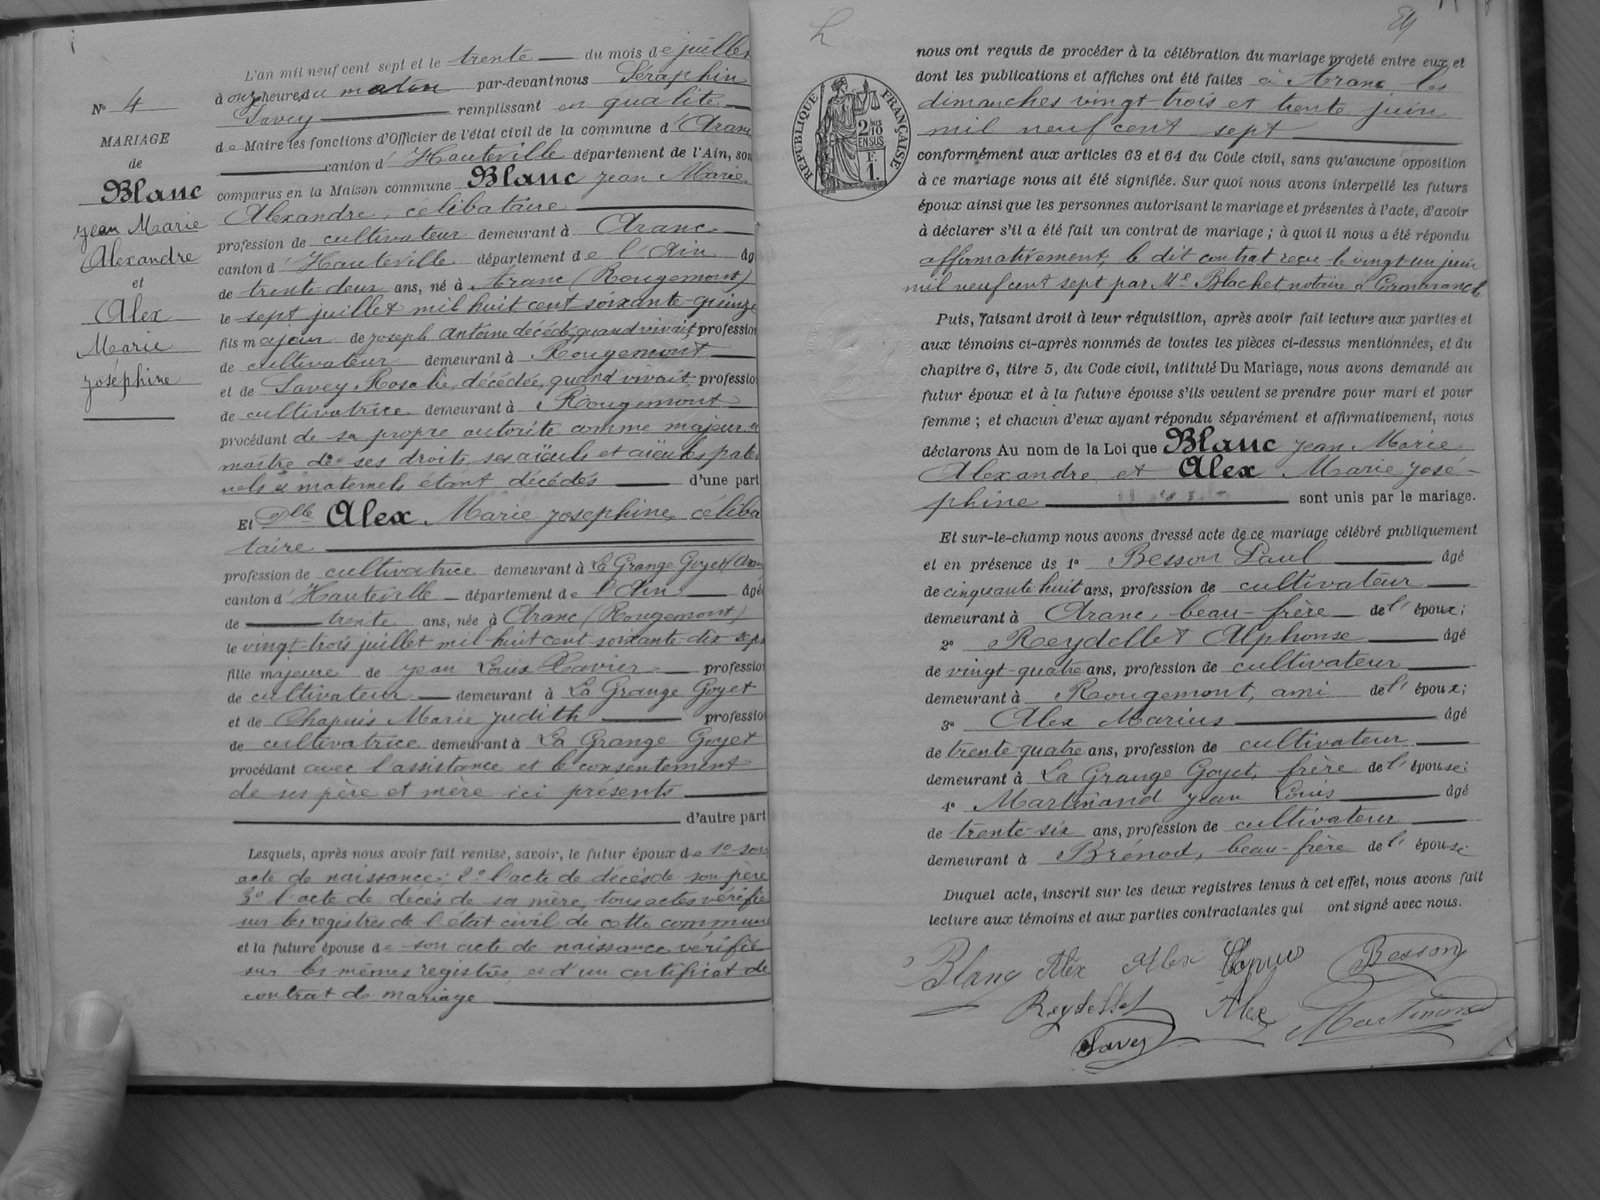 L'an mil neuf cent sept et le trente du mois de juillet
à onze heures du matin par-devant nous Séraphin
Savey remplissant en qualité
de Maire les fonctions d'Officier de l'état civil de la commune d'Aranc
canton d'Hauteville département de l'Ain, son
comparus en la Maison commune Blanc Jean Marie
Alexandre, célibataire
profession de cultivateur demeurant à Aranc
canton d'Hauteville département de l'Ain âg
de trente deux ans, né à Aranc (Rougemont)
le sept juillet mil huit cent soixante-quinze
fils majeur de Joseph Antoine décédé, quand vivait, profession
de cultivateur demeurant à Rougemont
et de Savey Rosalie, décédée, quand vivait profession
de cultivatrice demeurant à Rougemont
procédant de sa propre autorité comme majeur et
maître de ses droits, ses aïeuls et aïeules pater
nels et maternels étant décédés d'une part
Et Dlle Alex Marie Josephine, céliba
taire
profession de cultivatrice demeurant à La Grange Goyet (Aranc
canton d'Hauteville département de l'Ain âgée
de trente ans, née à Aranc (Rougemont)
le vingt-trois juillet mil huit cent soixante dix sept
fille majeure de Jean Louis Xavier profession
de cultivateur demeurant à La Grange Goyet
et de Chapuis Marie Judith profession
de cultivatrice demeurant à La Grange Goyet
procédant avec l'assistance et le consentement
de ses père et mère ici présents
d'autre part
Lesquels, après nous avoir fait remise, savoir, le futur époux de 1º son
acte de naissance; 2º l'acte de décès de son père
3º l'acte de décès de sa mère, tous actes vérifiés
sur les registres de l'état civil de cette commune
et la future épouse de son acte de naissance vérifié
sur les mêmes registres et d'un certificat de
contrat de mariage
No 4
MARIAGE
de
Blanc
Jean Marie
Alexandre
et
Alex
Marie
Joséphine
nous ont requis de procéder à la célébration du mariage projeté entre eux et
dont les publications et affiches ont été faites à Aranc les
dimanches vingt-trois et trente juin
mil neuf cent sept
conformément aux articles 63 et 64 du Code civil, sans qu'aucune opposition
à ce mariage nous ait été signifiée. Sur quoi nous avons interpellé les futurs
époux ainsi que les personnes autorisant le mariage et présentes à l'acte, d'avoir
à déclarer s'il a été fait un contrat de mariage ; à quoi il nous a été répondu
affirmativement, le dit contrat reçu le vingt un juin
mil neuf cent sept par Me Blachet notaire à
Puis, faisant droit à leur réquisition, après avoir fait lecture aux parties et
aux témoins ci-après nommés de toutes les pièces ci-dessus mentionnées, et du
chapitre 6, titre 5, du Code civil, intitulé Du Mariage, nous avons demandé au
futur époux et à la future épouse s'ils veulent se prendre pour mari et pour
femme ; et chacun d'eux ayant répondu séparément et affirmativement, nous
déclarons Au nom de la Loi que Blanc Jean Marie
Alexandre et Alex Marie José-
phine sont unis par le mariage.
Et sur-le-champ nous avons dressé acte de ce mariage célébré publiquement
et en présence de 1º Besson Paul âgé
de cinquante huit ans, profession de cultivateur
demeurant à Aranc, beau-frère de l'époux;
2º Reydellet Alphonse âgé
de vingt-quatre ans, profession de cultivateur
demeurant à Rougemont, ami de l'époux;
3º Alex Marius âgé
de trente quatre ans, profession de cultivateur
demeurant à La Grange Goyet, frère de l'épouse;
4º Martinand Jean Louis âgé
de trente-six ans, profession de cultivateur
demeurant à Brénod, beau-frère de l'épouse
Duquel acte, inscrit sur les deux registres tenus à cet effet, nous avons fait
lecture aux témoins et aux parties contractantes qui ont signé avec nous.
Blanc Alex Alex Besson
Reydellet Alex Martinand
Savey
RÉPUBLIQUE FRANÇAISE
2 10 EN SUS
F. 1.